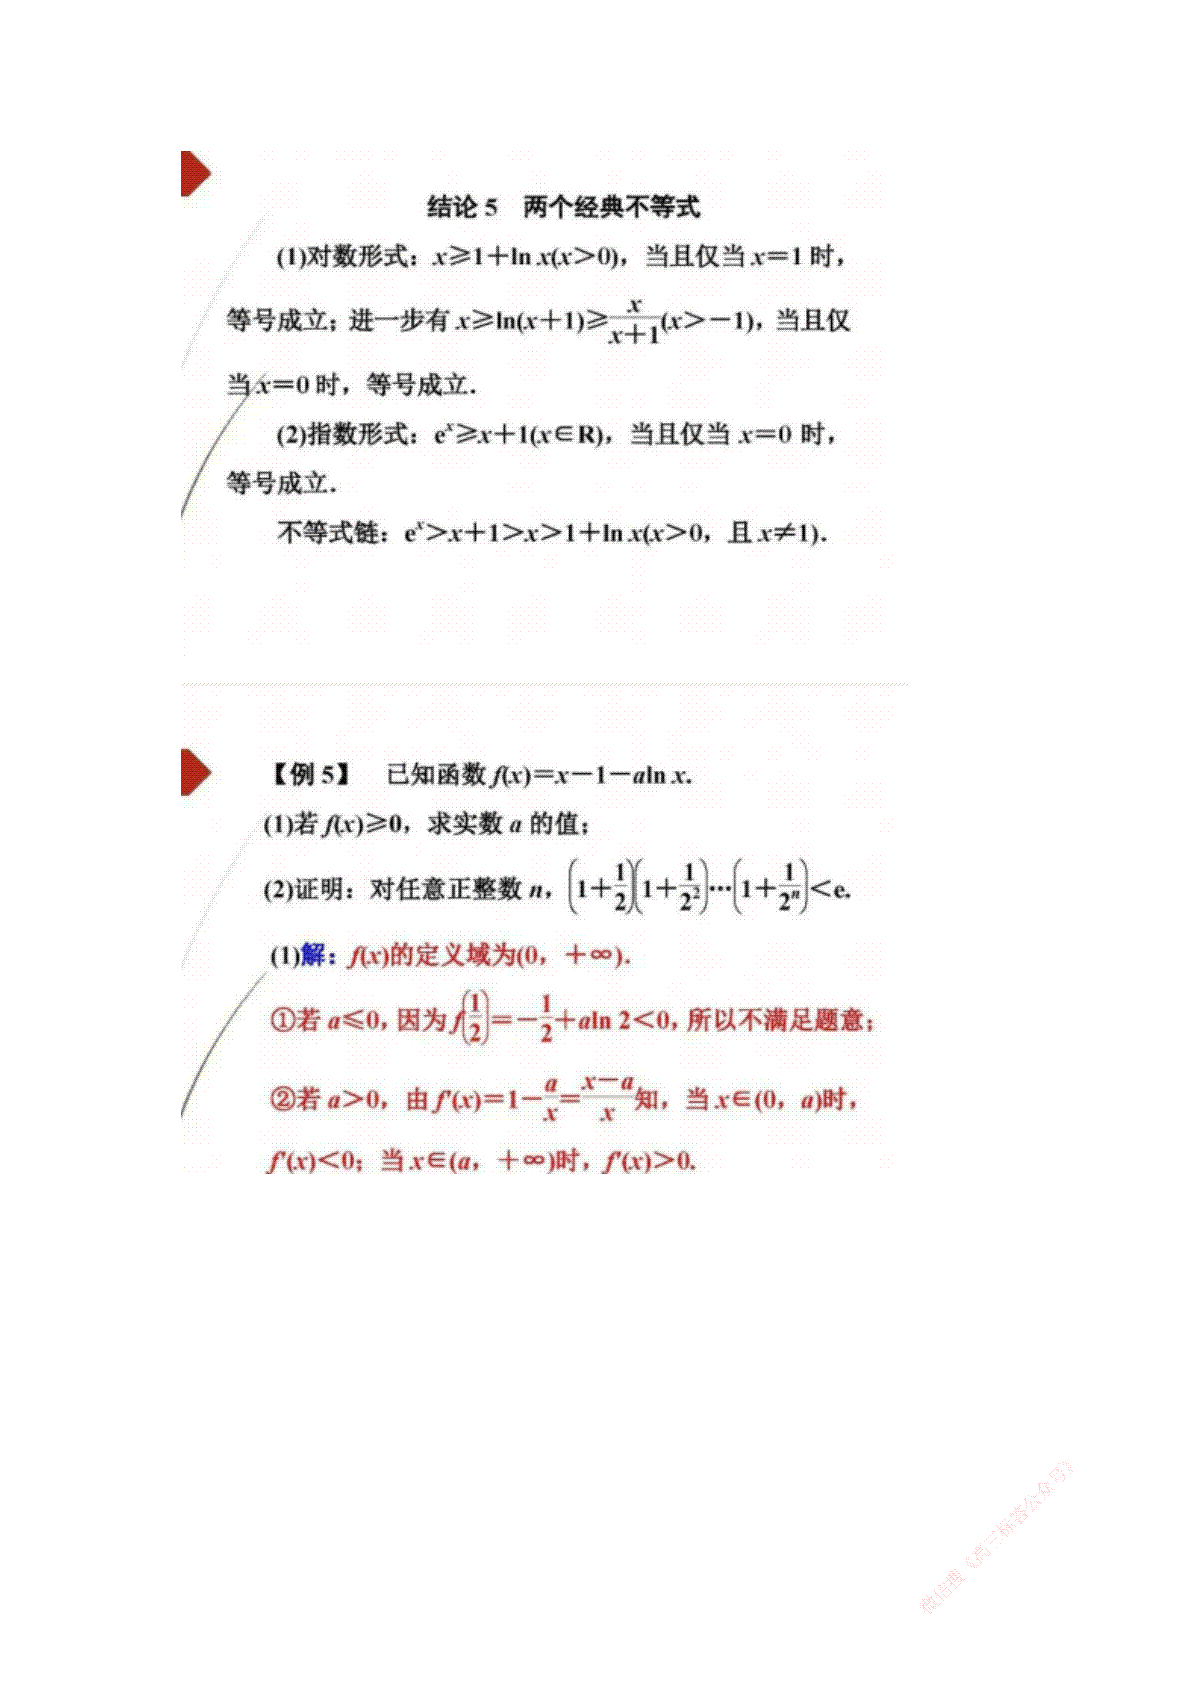 结论 5　两个经典不等式
(1)对数形式：x≥1＋ln x(x＞0)，当且仅当 x＝1 时，
等号成立；进一步有 x≥ln(x＋1)≥x/(x＋1)(x＞－1)，当且仅
当 x＝0 时，等号成立．
(2)指数形式：eˣ≥x＋1(x∈R)，当且仅当 x＝0 时，
等号成立．
不等式链：eˣ＞x＋1＞x＞1＋ln x(x＞0，且 x≠1)．
【例 5】　已知函数 f(x)＝x－1－aln x.
(1)若 f(x)≥0，求实数 a 的值；
(2)证明：对任意正整数 n，(1＋1/2)(1＋1/2²)…(1＋1/2ⁿ)＜e.
(1)解：f(x)的定义域为(0，＋∞)．
①若 a≤0，因为 f(1/2)＝－1/2＋aln 2＜0，所以不满足题意；
②若 a＞0，由 f′(x)＝1－a/x＝(x－a)/x知，当 x∈(0，a)时，
f′(x)＜0；当 x∈(a，＋∞)时，f′(x)＞0.
微信搜《高三标答公众号》